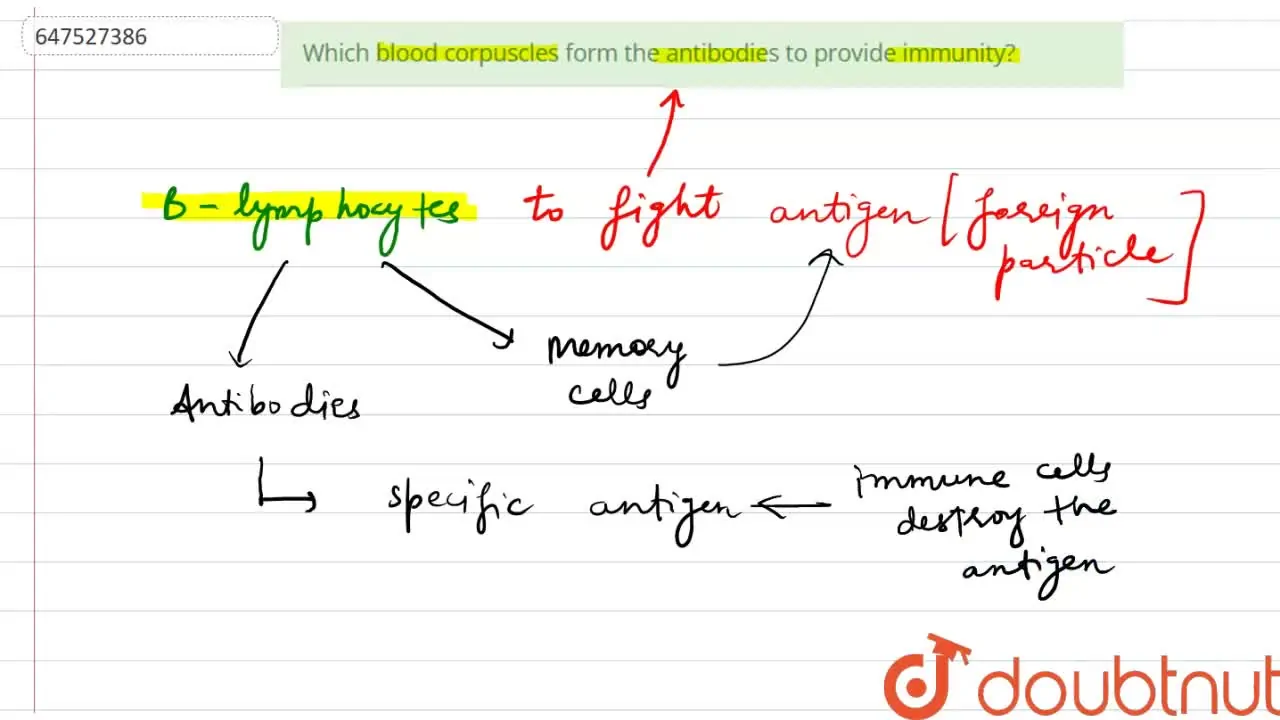 647527386
Which blood corpuscles form the antibodies to provide immunity?
B - lymphocytes to fight antigen [foreign
particle]
Memory
cells
Antibodies
specific antigen
immune cells
destroy the
antigen
doubtnut